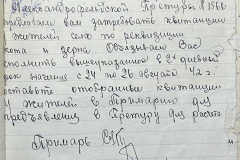 Александрфельдской Претуры N 1566
предлогаем вам затребовать квитанции
у жителей села по реквизиции
скота и зерна. Обязываем Вас
исполнить вышеуказанное в 2х дневный
срок начиная с 24 по 26 августа 42 г.
оставьте отобранные квитанции
у жителей в Примарии для
предъявления в Претуру для расчета
Примарь